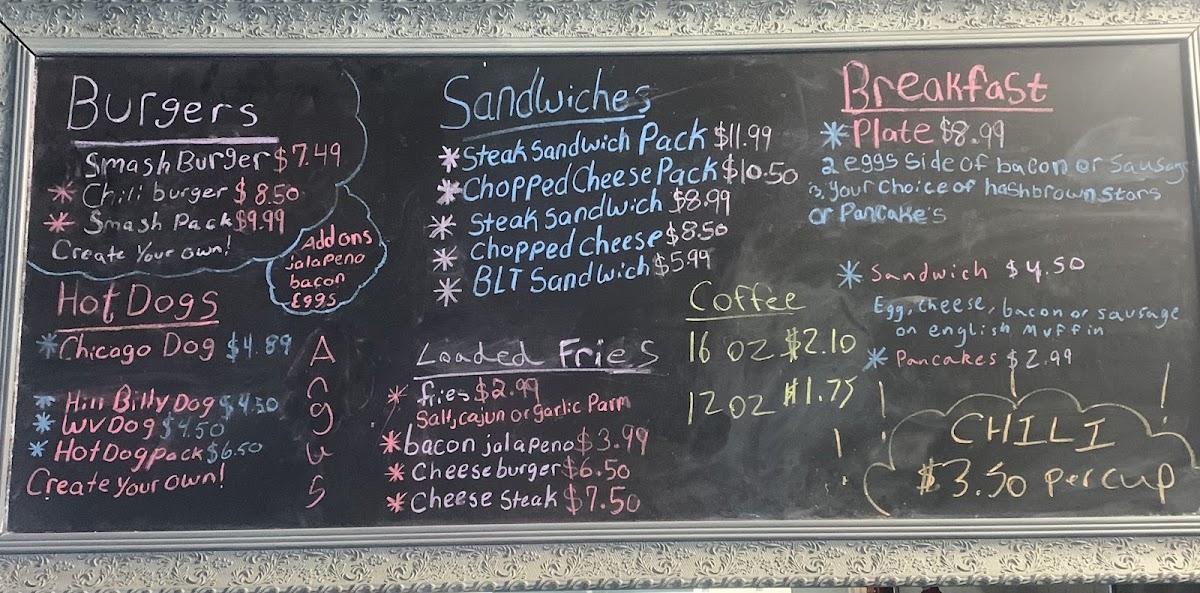 Burgers
Smash Burger $7.49
* Chili burger $8.50
* Smash Pack $9.99
Create Your own!
Add ons
jalapeno
bacon
Eggs
Hot Dogs
* Chicago Dog $4.89
* Hill Billy Dog $4.50
* WV Dog $4.50
* Hot Dog Pack $6.50
Create Your own!
Angus
Sandwiches
* Steak Sandwich Pack $11.99
* Chopped Cheese Pack $10.50
* Steak Sandwich $8.99
* Chopped Cheese $8.50
* BLT Sandwich $5.99
Loaded Fries
* fries $2.99
Salt, cajun or garlic Parm
* bacon jalapeno $3.99
* Cheeseburger $6.50
* Cheese Steak $7.50
Coffee
16 oz $2.10
12 oz $1.75
Breakfast
* Plate $8.99
2 eggs side of bacon or Sausage
& your choice of hashbrown stars
or Pancake's
* Sandwich $4.50
Egg, cheese, bacon or sausage
on english Muffin
* Pancakes $2.99
CHILI
$3.50 per cup